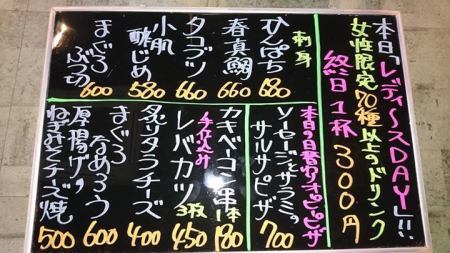 本日「レディースDAY」!!
女性限定70種以上のドリンク
終日1杯300円
刺身
ひらまさ 680
春真鯛 660
タコブツ 660
小肌酢じめ 580
まぐろぶつ切 600
本日の日替わりピザ
ソーセージとサラミのサルサピザ 700
カキベーコン串 1本 180
チーズ込み
レバカツ 3枚 450
炙りタラチーズ 400
まぐろなめろう 600
厚揚げのねぎみそチーズ焼 500